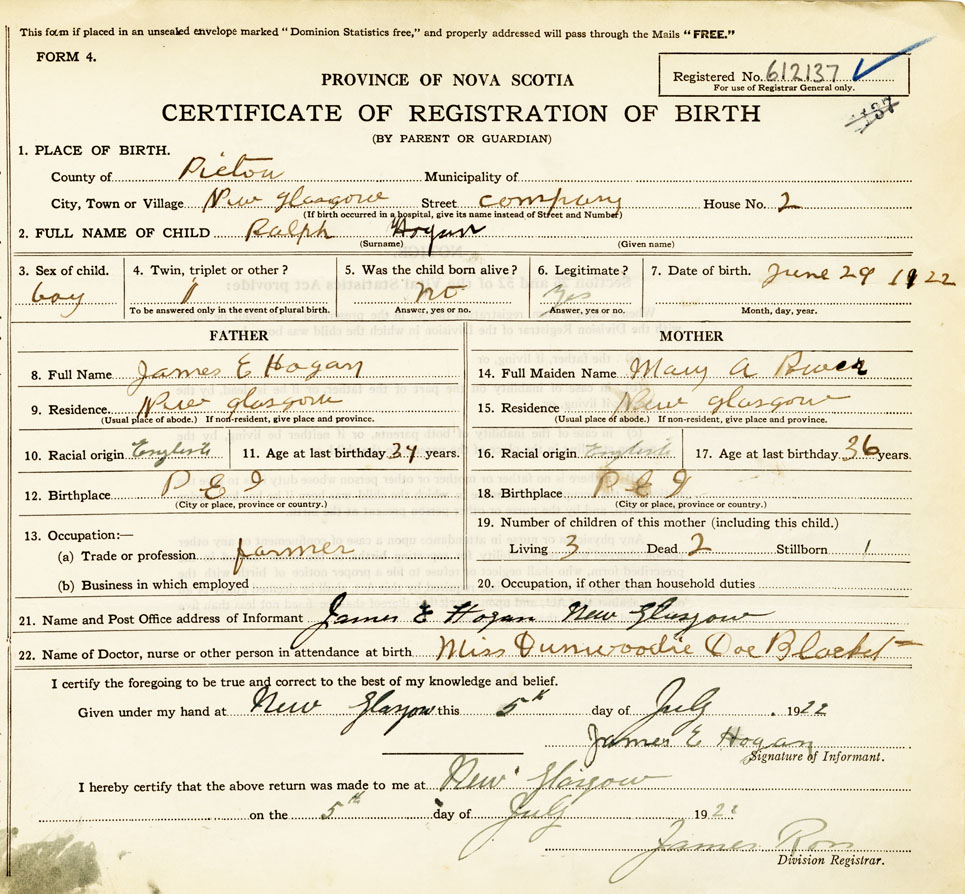 This form if placed in an unsealed envelope marked "Dominion Statistics free," and properly addressed will pass through the Mails "FREE."
FORM 4.
Registered No. 612137
For use of Registrar General only.
137
PROVINCE OF NOVA SCOTIA
CERTIFICATE OF REGISTRATION OF BIRTH
(BY PARENT OR GUARDIAN)
1. PLACE OF BIRTH.
County of Pictou Municipality of
City, Town or Village New Glasgow Street company House No. 2
(If birth occurred in a hospital, give its name instead of Street and Number)
2. FULL NAME OF CHILD Ralph Hogan
(Surname) (Given name)
3. Sex of child. 4. Twin, triplet or other? 5. Was the child born alive? 6. Legitimate? 7. Date of birth. June 29 1922
boy 1 No Yes
To be answered only in the event of plural birth. Answer, yes or no. Answer, yes or no. Month, day, year.
FATHER MOTHER
8. Full Name James E Hogan 14. Full Maiden Name Mary A
9. Residence. New Glasgow 15. Residence New Glasgow
(Usual place of abode.) If non-resident, give place and province. (Usual place of abode.) If non-resident, give place and province.
10. Racial origin English 11. Age at last birthday 34 years. 16. Racial origin English 17. Age at last birthday 36 years.
12. Birthplace P E I 18. Birthplace P E I
(City or place, province or country.) (City or place, province or country.)
13. Occupation:— 19. Number of children of this mother (including this child.)
(a) Trade or profession farmer Living 3 Dead 2 Stillborn 1
(b) Business in which employed 20. Occupation, if other than household duties
21. Name and Post Office address of Informant James E Hogan New Glasgow
22. Name of Doctor, nurse or other person in attendance at birth Miss Dunwoodie Doc Blacket
I certify the foregoing to be true and correct to the best of my knowledge and belief.
Given under my hand at New Glasgow this 5th day of July 1922
James E Hogan
Signature of Informant.
I hereby certify that the above return was made to me at New Glasgow
on the 5th day of July 1922
James Ross
Division Registrar.